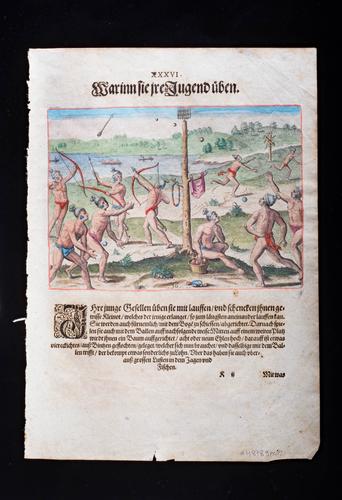 XXXVI.
Warinn sie jre Jugend üben.
Ihre junge Gesellen üben sie mit lauffen / vnd schencken jhnen ge-
wisse Kleinot / welches der jenige erlanget / so zum längsten aneinander lauffen kan.
Sie werden auch fürnemlich / mit dem Bogē zu schiessen / abgerichtet. Darnach spie-
len sie auch mit dem Ballen auff nachfolgende weiß: Mitten auff einem weiten Platz
wirdt ihnen ein Baum auffgerichtet / acht oder neun Ehlen hoch / darauff ist etwas
viereckichts / auß Bintzen geflochten / geleget / welcher sich nun brauchet / vnd dasselbige mit dem Bal-
len trifft / der bekompt etwas sonderlichs zu Lohn. Vber das haben sie auch vber-
auß grossen Lusten in dem Jagen vnd
Fischen.
K ij Mit was